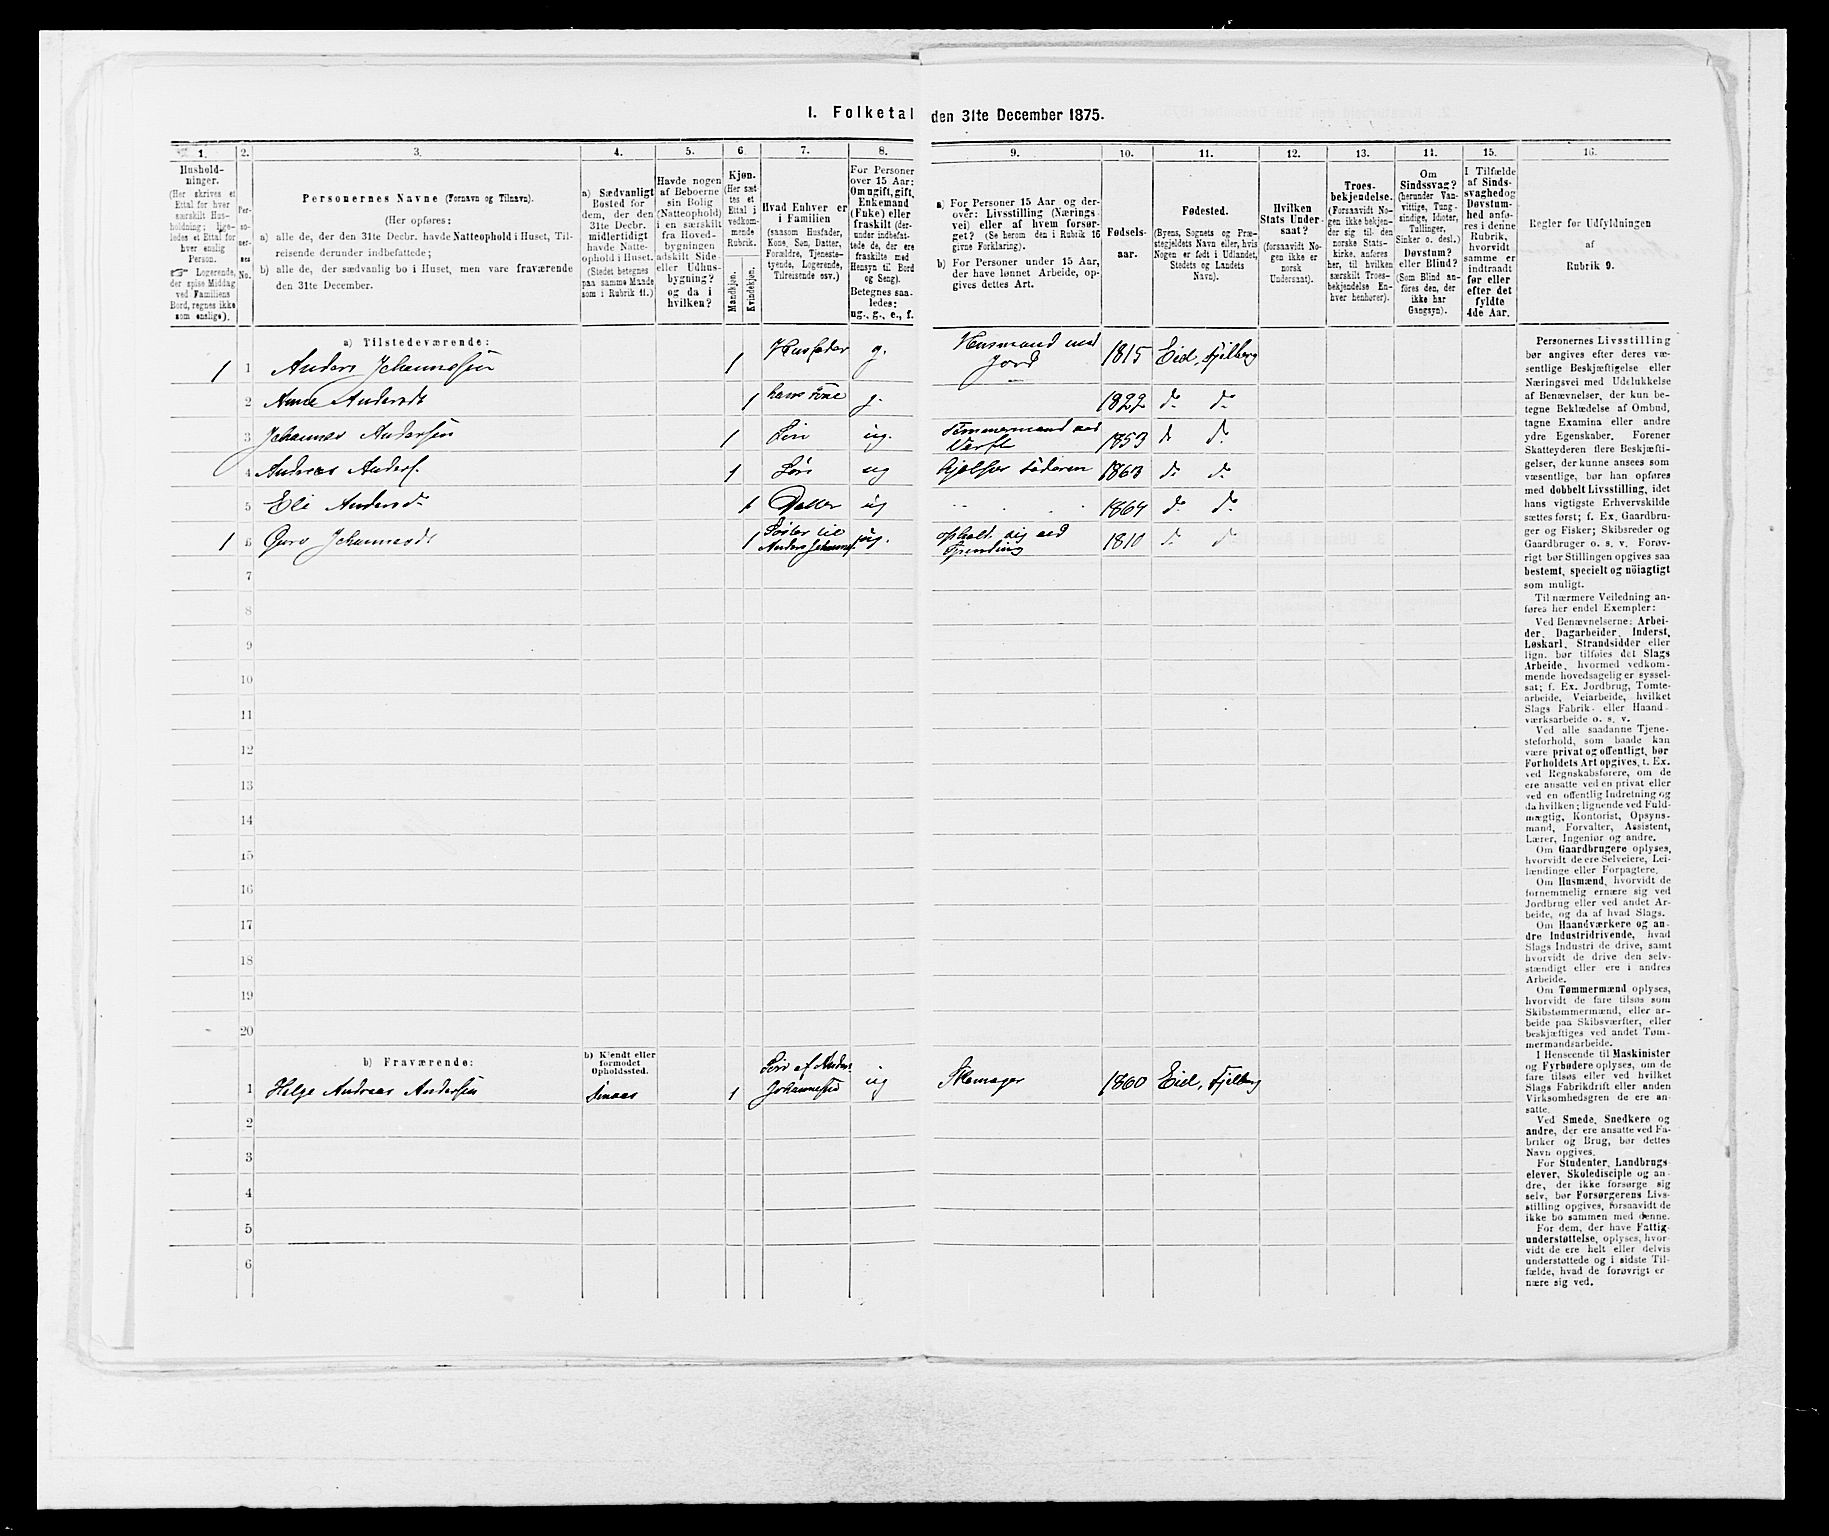 1. Folketal den 31te December 1875.
1.
2.
3.
4.
5.
6.
7.
8.
9.
10.
11.
12.
13.
14.
15.
16.
Hushold-
ninger.
(Her skrives et
Ettal for hver
særskilt Hus-
holdning; lige-
ledes et Ettal for
hver enslig
Person.
☞ Logerende,
der spise Middag
ved Familiens
Bord, regnes ikke
som enslige).
Per-
soner-
nes
No.
Personernes Navne (Fornavn og Tilnavn).
(Her opføres:
a) alle de, der den 31te Decbr. havde Natteophold i Huset, Til-
reisende derunder indbefattede;
b) alle de, der sædvanlig bo i Huset, men vare fraværende
den 31te December.
a) Sædvanligt
Bosted for
dem, der den
31te Decbr.
midlertidigt
havde Natte-
ophold i Huset.
(Stedet betegnes
paa samme Maade
som i Rubrik 11.)
Havde nogen
af Beboerne
sin Bolig
(Natteophold)
i en særskilt
fra Hoved-
bygningen
adskilt Side-
eller Udhus-
bygning?
og da i
hvilken?
Kjøn.
(Her sæt-
tes et
Ettal i
vedkom-
mende
Rubrik.
Mandkjøn.
Kvindekjøn.
Hvad Enhver er
i Familien
(saasom Husfader,
Kone, Søn, Datter,
Forældre, Tjeneste-
tyende, Logerende,
Tilreisende osv.)
For Personer
over 15 Aar:
Om ugift, gift,
Enkemand
(Enke) eller
fraskilt (der-
under indbefat-
tede de, der ere
fraskilte med
Hensyn til Bord
og Seng).
Betegnes saa-
ledes:
ug., g., e., f.
a) For Personer 15 Aar og der-
over: Livsstilling (Nærings-
vei) eller af hvem forsør-
get? (Se herom den i Rubrik 16
givne Forklaring).
b) For Personer under 15 Aar,
der have lønnet Arbeide, op-
gives dettes Art.
Fødsels-
aar.
Fødested.
(Byens, Sognets og Præ-
stegjeldets Navn eller, hvis
Nogen er født i Udlandet,
Stedets og Landets
Navn).
Hvilken
Stats Under-
saat?
(forsaavidt No-
gen ikke er
norsk
Undersaat).
Troes-
bekjendelse.
(Forsaavidt No-
gen ikke bekjen-
der sig til den
norske Stats-
kirke, anføres
her, til hvilken
særskilt Troes-
bekjendelse En-
hver henhører).
Om
Sindssvag?
(herunder Van-
vittige, Tung-
sindige, Idioter,
Tullinger,
Sinker o. desl.)
Døvstum?
eller Blind?
(Som Blind an-
føres den, der
ikke har
Gangsyn).
I Tilfælde
af Sinds-
svaghed og
Døvstum-
hed anfø-
res i denne
Rubrik,
hvorvidt
samme er
indtraadt
før eller
efter det
fyldte
4de Aar.
Regler for Udfyldningen
af
Rubrik 9.
a) Tilstedeværende:
1 1 Anders Johannessen 1 Husfader g. Husmand med Jord 1815 Eid, Fjelberg
2 Anna Andersdt 1 hans Kone g. 1822 do do
3 Johannes Andersen 1 Søn ug. Tømmermand ved Verft 1853 do do
4 Andreas Anders. 1 Søn ug hjælper Faderen 1863 do do
5 Eli Andersdr 1 Datter ug 1864 do do
1 6 Guro Johannesdt 1 Søster til Anders Johannes. ug. opholdt sig ved Spinding 1810 do do
7
8
9
10
11
12
13
14
15
16
17
18
19
20
b) Fraværende:
b) Kjendt eller
formodet
Opholdssted.
1 Helge Andreas Andersen 1 Søn af Anders Johannessen ug Skomager 1860 Eid, Fjelberg
2
3
4
5
6
Personernes Livsstilling
bør angives efter deres væ-
sentlige Beskjæftigelse eller
Næringsvei med Udelukkelse
af Benævnelser, der kun be-
tegne Beklædelse af Ombud,
tagne Examina eller andre
ydre Egenskaber. Forener
Skatteyderen flere Beskjæfti-
gelser, der kunne ansees som
væsentlige, bør han opføres
med dobbelt Livsstilling, idet
hans vigtigste Erhvervskilde
sættes først; f. Ex. Gaardbru-
ger og Fisker; Skibsreder og
Gaardbruger o. s. v. Forøv-
rigt bør Stillingen opgives saa
bestemt, specielt og nøiagtigt
som muligt.
Til nærmere Veiledning an-
føres her endel Exempler:
Ved Benævnelserne: Arbei-
der, Dagarbeider, Inderst,
Løskarl, Strandsidder eller
lign. bør tilføies det Slags
Arbeide, hvormed vedkom-
mende hovedsagelig er syssel-
sat; f. Ex. Jordbrug, Tomte-
arbeide, Veiarbeide, hvilket
Slags Fabrik- eller Haand-
værksarbeide o. s. v.
Ved alle saadanne Tjene-
steforhold, som baade kan
være privat og offentligt, bør
Forholdets Art opgives, t. Ex.
ved Regnskabsførere, om de
ere ansatte ved en privat eller
ved en offentlig Indretning og
da hvilken; lignende ved Fuld-
mægtig, Kontorist, Opsyns-
mand, Forvalter, Assistent,
Lærer, Ingeniør og andre.
Om Gaardbrugere oplyses,
hvorvidt de ere Selveiere, Lei-
lændinge eller Forpagtere.
Om Husmænd, hvorvidt de
fornemmelig ernære sig ved
Jordbrug eller ved andet Ar-
beide, og da af hvad Slags.
Om Haandværkere og an-
dre Industridrivende, hvad
Slags Industri de drive, samt
hvorvidt de drive den selv-
stændigt eller ere i andres
Arbeide.
Om Tømmermænd oplyses,
hvorvidt de fare tilsøs som
Skibstømmermænd, eller ar-
beide paa Skibsværfter, eller
beskjæftiges ved andet Tøm-
mermandsarbeide.
I Henseende til Maskinister
og Fyrbødere oplyses, om de
fare tilsøs eller ved hvilket
Slags Fabrikdrift eller anden
Virksomhedsgren de ere an-
satte.
Ved Smede, Snedkere og
andre, der ere ansatte ved Fa-
briker og Brug, bør dettes
Navn opgives.
For Studenter, Landbrugs-
elever, Skoledisciple og an-
dre, der ikke forsørge sig
selv, bør Forsørgerens Livs-
stilling opgives, forsaavidt de
ikke bo sammen med denne.
For dem, der have Fattig-
understøttelse, oplyses, hvor-
vidt de ere helt eller delvis
understøttede og i sidste Til-
fælde, hvad de forøvrigt er
nære sig ved.